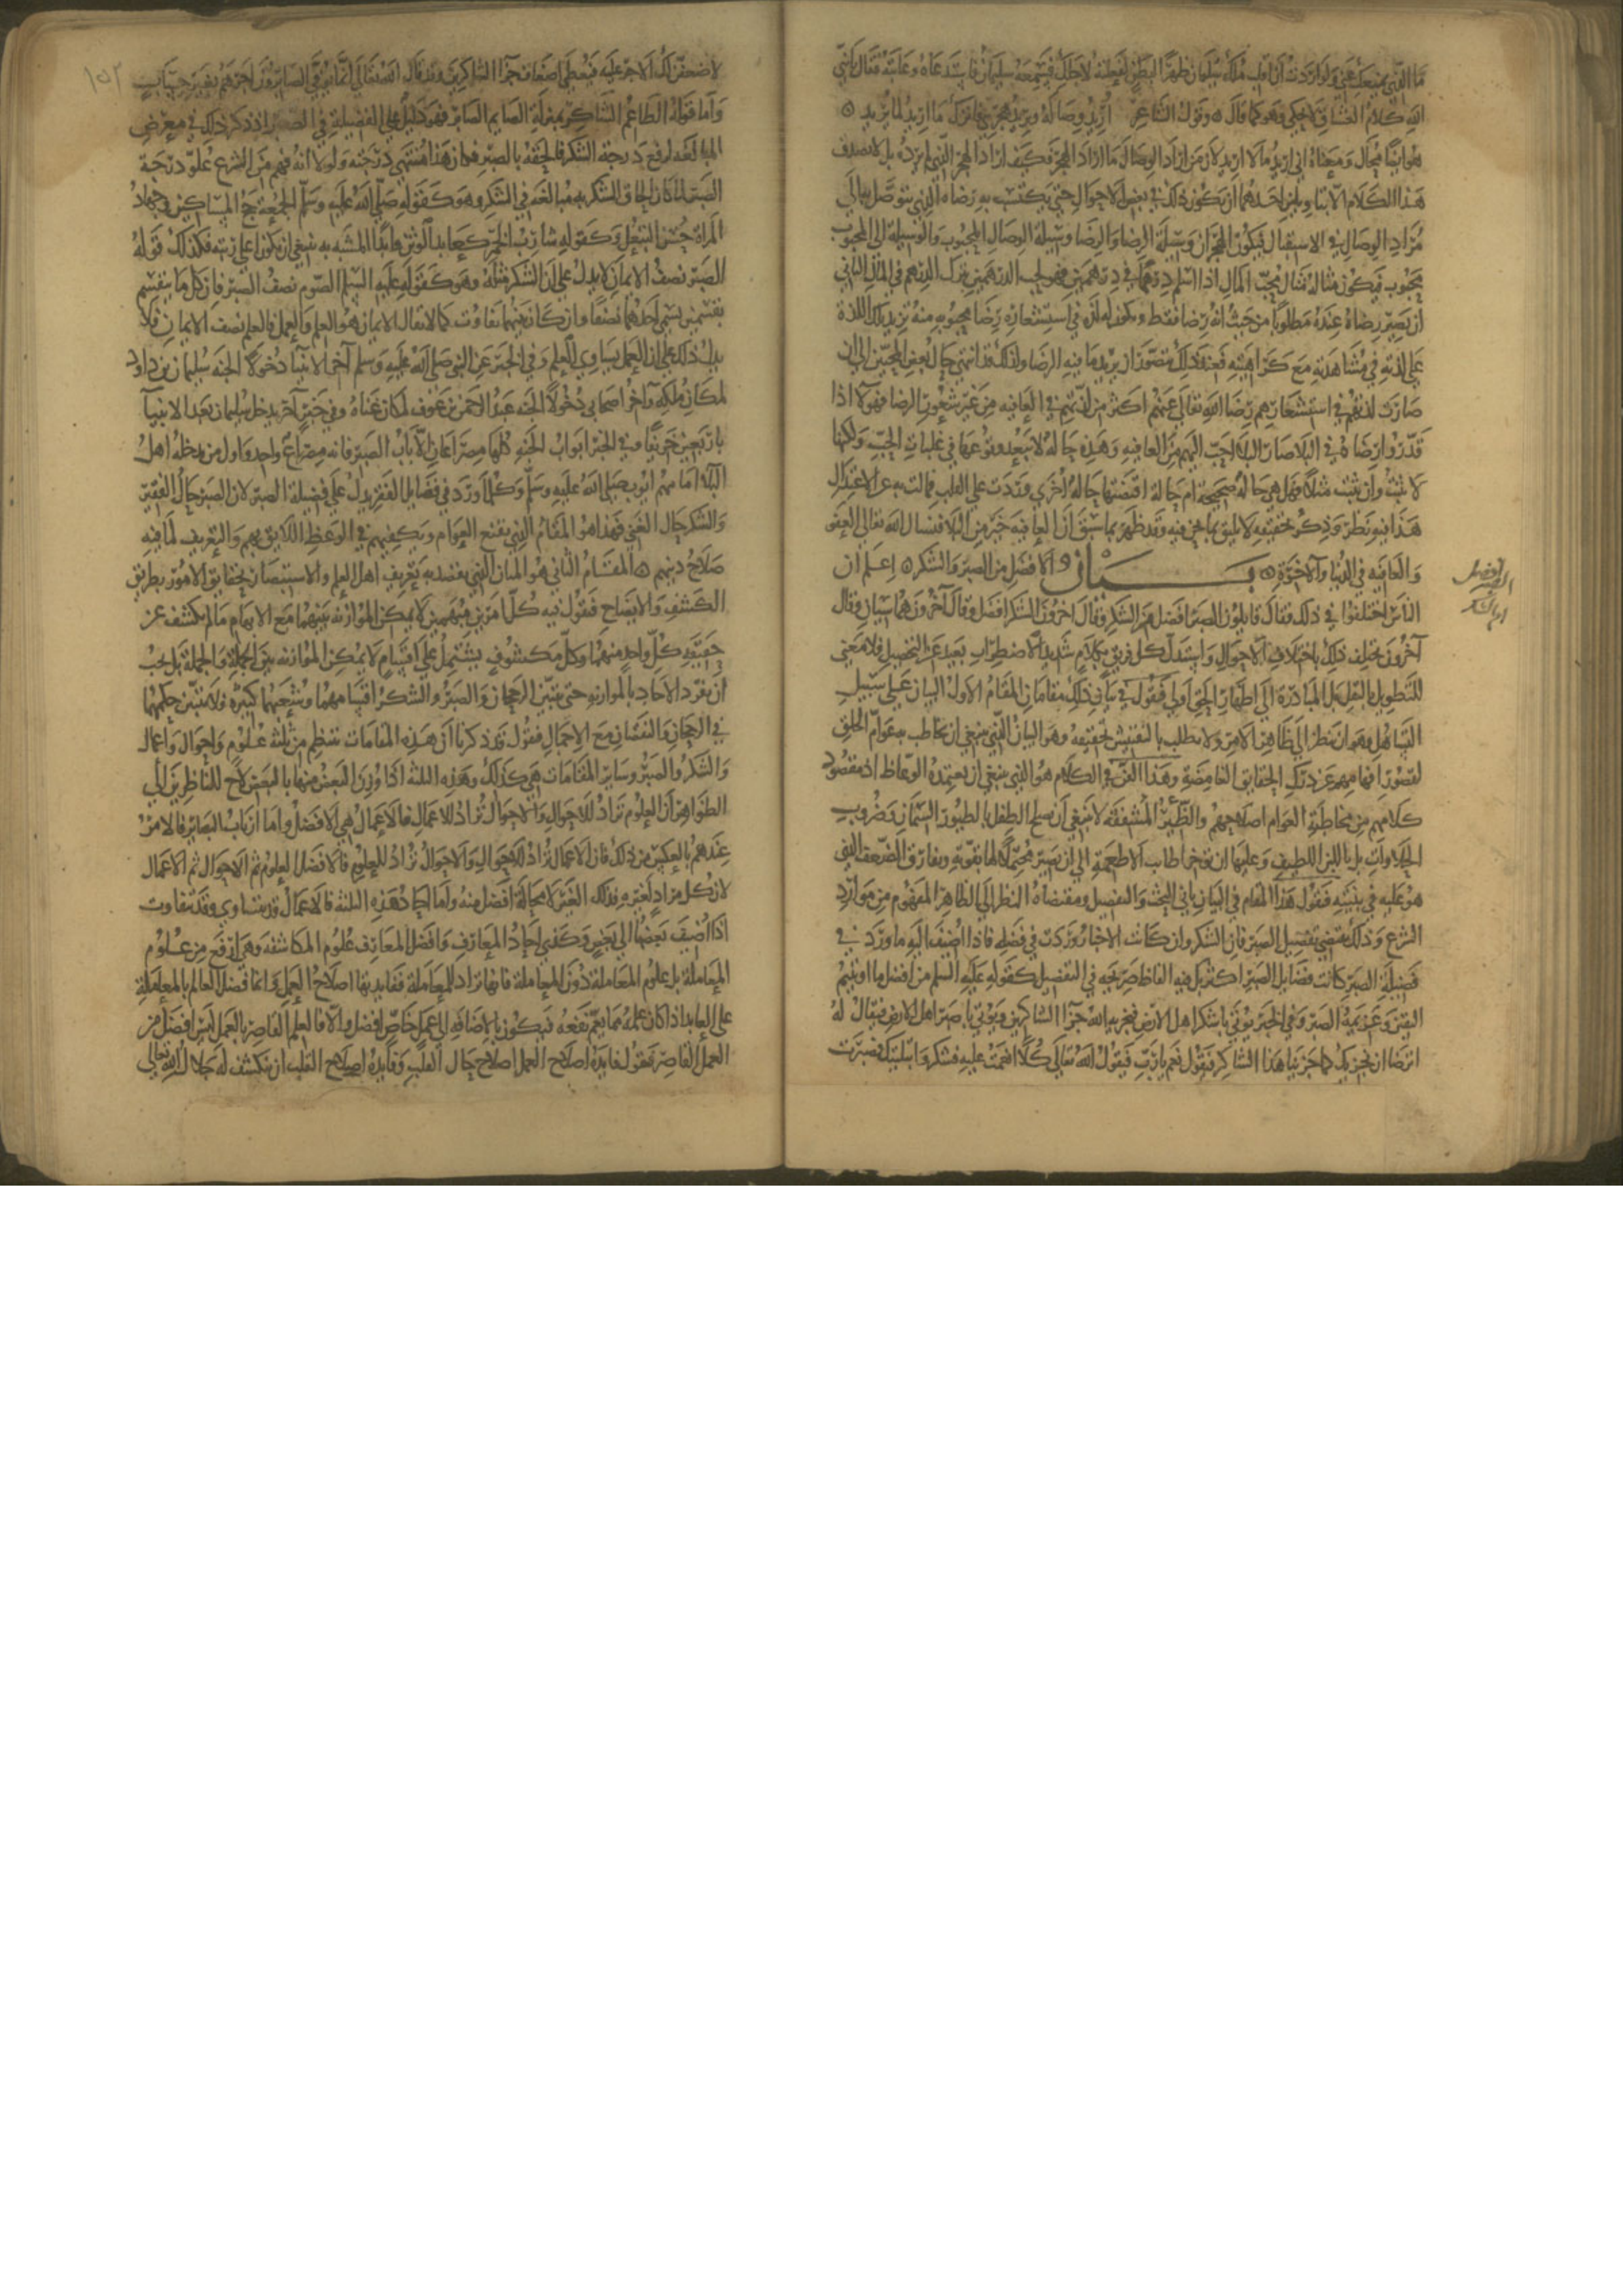 ما الذي يمنعك عني ولو اردت ان اقلب ملك سليمان ظهرا لبطن لفعلته لاجلك فسمعه سليمان فاستدعاه وعاتبه فقال يا نبي
الله كلام العشاق لا يحكى وهو كما قال ه وقول الشاعر اريد وصاله ويريد هجري فاترك ما اريد لما يريد ه
هو ايضا محال ومعناه اني اريد ما لا اريد لان من اراد الوصال ما اراد الهجر فكيف اراد الهجر الذي لم يرده بل لا يصدق
هذا الكلام الا بتاويلين احدهما ان يكون ذلك في بعض الاحوال حتى يكتسب به رضاه الذي يتوصل به الى
مراد الوصال في الاستقبال فيكون الهجران وسيلة الرضا والرضا وسيلة الوصال المحبوب والوسيلة الى المحبوب
محبوب فيكون مثاله مثال محب المال اذا اسلم درهما في درهمين فهو يحب الدرهمين يترك الدرهم في الحال الثاني
ان يصير رضاه عنده مطلوبا من حيث انه رضا فقط ويكون له لذة في استشعاره رضا محبوبه منه تزيد تلك اللذة
على لذته في مشاهدته مع كراهيته فعند ذلك يتصور ان يريد ما فيه الرضا ولذلك قد انتهى حال بعض المحبين الى ان
صارت لذتهم في استشعارهم رضا الله تعالى عنهم اكثر من لذتهم في العافيه من غير شعور الرضا فهولا اذا
قدروا رضاه في البلا صار البلا احب اليهم من العافيه وهذه حاله لا يبعد وقوعها في غلبات الحب ولكنها
لا تثبت وان ثبت مثلا فهل هي حالة صحيحة ام حالة اقتضتها حاله اخرى وردت على القلب فمالت به عن الاعتدال
هذا فيه نظر وذكر تحقيقه لا يليق بما نحن فيه وقد ظهر بما سبق ان العافيه خير من البلا فنسال الله تعالى العفو
والعافيه في الدنيا والاخرة ه بيان الافضل من الصبر والشكر ه اعلم ان
الناس اختلفوا في ذلك فقال قايلون الصبر افضل من الشكر وقال اخرون الشكر افضل وقال آخرون هما سيان وقال
آخرون يختلف ذلك باختلاف الاحوال واستدل كل فريق بكلام شديد الاضطراب بعيد عن التحصيل فلا معنى
للتطويل بالنقل بل المبادرة الى اظهار الحق اولى فنقول في بيان ذلك مقامان المقام الاول البيان على سبيل
التساهل وهو ان ينظر الى ظاهر الامر ولا يطلب بالتفتيش لحقيقه وهو البيان الذي ينبغي ان يخاطب به عوام الخلق
لقصور افهامهم عن درك الحقايق الغامضة وهذا الفن في الكلام هو الذي ينبغي ان يعتمده الوعاظ اذ مقصود
كلامهم من مخاطبة العوام اصلاحهم والظئر المشفقه لا ينبغي ان تصلح الطفل بالطيور السمان وضروب
الحلاوات بل باللبن اللطيف وعليها ان توخر اطايب الاطعمة الى ان يصير محتملا لها بقوته ويفارق الضعف الذي
هو عليه في بنيته فنقول هذا المقام في البيان يابى البحث والتفصيل ومقتضاه النظر الى الظاهر المفهوم من موارد
الشرع وذلك يقتضي تفضيل الصبر فان الشكر وان كانت الاخبار وردت في فضله فاذا اضيف اليه ما ورد في
فضيلة الصبر كانت فضايل الصبر اكثر بل فيه الفاظ صريحه في التفضيل كقوله عليه السلم من افضل ما اوتيتم
اليقين وعزيمة الصبر وفي الخبر يوتى باشكر اهل الارض فيجزيه الله جزا الشاكرين ويوتى باصبر اهل الارض فيقال له
اترضا ان نجزيك كما جزينا هذا الشاكر فيقول نعم يا رب فيقول الله تعالى كلا انعمت عليه فشكر وابتليتك فصبرت
الافضل
الصبر
ام الشكر
١٥٢
لاضعفن لك الاجر عليه فيعطى اضعاف جزا الشاكرين وقد قال الله تعالى انما يوفى الصابرون اجرهم بغير حساب
واما قوله الطاعم الشاكر بمنزلة الصايم الصابر فهو دليل على الفضيلة في الصبر اذ ذكر ذلك في معرض
المبالغه لرفع درجة الشكر فالحقه بالصبر فكان هذا منتهى درجته ولولا انه فهم من الشرع علو درجة
الصبر لما كان الحاق الشكر به مبالغه في الشكر وهو كقوله صلى الله عليه وسلم الجمعة حج المساكين وجهاد
المراة حسن التبعل وكقوله شارب الخمر كعابد الوثن وابدا المشبه به ينبغي ان يكون اعلى رتبه فكذلك قوله
الصبر نصف الايمان لا يدل على ان الشكر مثله وهو كقوله عليه السلم الصوم نصف الصبر فان كل ما ينقسم
بقسمين يسمى احدهما نصفا وان كان بينهما تفاوت كما يقال الايمان هو العلم والعمل فالعلم نصف الايمان فلا
يدل ذلك على ان العمل يساوي العلم وفي الخبر عن النبي صلى الله عليه وسلم آخر الانبيا دخولا الجنه سليمان بن داود
لمكان ملكه وآخر اصحابي دخولا الجنه عبد الرحمن بن عوف لمكان غناه وفي خبر آخر يدخل سليمان بعد الانبيا
باربعين خريفا وفي الخبر ابواب الجنه كلها مصراعان الا باب الصبر فانه مصراع واحد واول من يدخله اهل
البلا امامهم ايوب صلى الله عليه وسلم وكلما ورد في فضايل الفقر يدل على فضيلة الصبر لان الصبر حال الفقير
والشكر حال الغني فهذا هو المقام الذي يقنع العوام ويكفيهم في الوعظ اللايق بهم والتعريف لما فيه
صلاح دينهم ه المقام الثاني هو البيان الذي يقصد به تعريف اهل العلم والاستبصار بحقايق الامور بطريق
الكشف والايضاح فنقول فيه كل امرين مبهمين لا يمكن الموازنه بينهما مع الابهام ما لم يكشف عن
حقيقه كل واحد منهما وكل مكشوف يشتمل على اقسام لا يمكن الموازنه بين الجملة والجملة بل يجب
ان تفرد الاحاد بالموازنه حتى يتبين الرجحان والصبر والشكر اقسامهما وشعبهما كثيره ولا يتبين حكمهما
في الرجحان والنقصان مع الاجمال فنقول قد ذكرنا ان هذه المقامات تنتظم من ثلثه علوم واحوال واعمال
والشكر والصبر وساير المقامات هي كذلك وهذه الثلثه اذا وزن البعض منها بالبعض لاح للناظرين الى
الظواهر ان العلوم تراد للاحوال والاحوال تراد للاعمال فالاعمال هي الافضل واما ارباب البصاير فالامر
عندهم بالعكس من ذلك فان الاعمال تراد للاحوال والاحوال تراد للعلوم فالافضل العلوم ثم الاحوال ثم الاعمال
لان كل مراد لغيره فذلك الغير لا محالة افضل منه واما احاد هذه الثلثه فالاعمال قد يتساوى وقد يتفاوت
اذا اضيف بعضها الى بعض وكذى احاد المعارف وافضل المعارف علوم المكاشفه وهي ارفع من علوم
المعاملة بل علوم المعاملة دون المعاملة فانها تراد للمعاملة ففايدتها اصلاح العمل وانما فضل العالم بالمعاملة
على العابد اذا كان علمه مما يعم نفعه فيكون بالاضافه الى عمل خاص افضل والا فالعلم القاصر بالعمل ليس افضل من
العمل القاصر فنقول فايدة اصلاح العمل اصلاح حال القلب وفايدة اصلاح القلب ان ينكشف له جلال الله تعالى